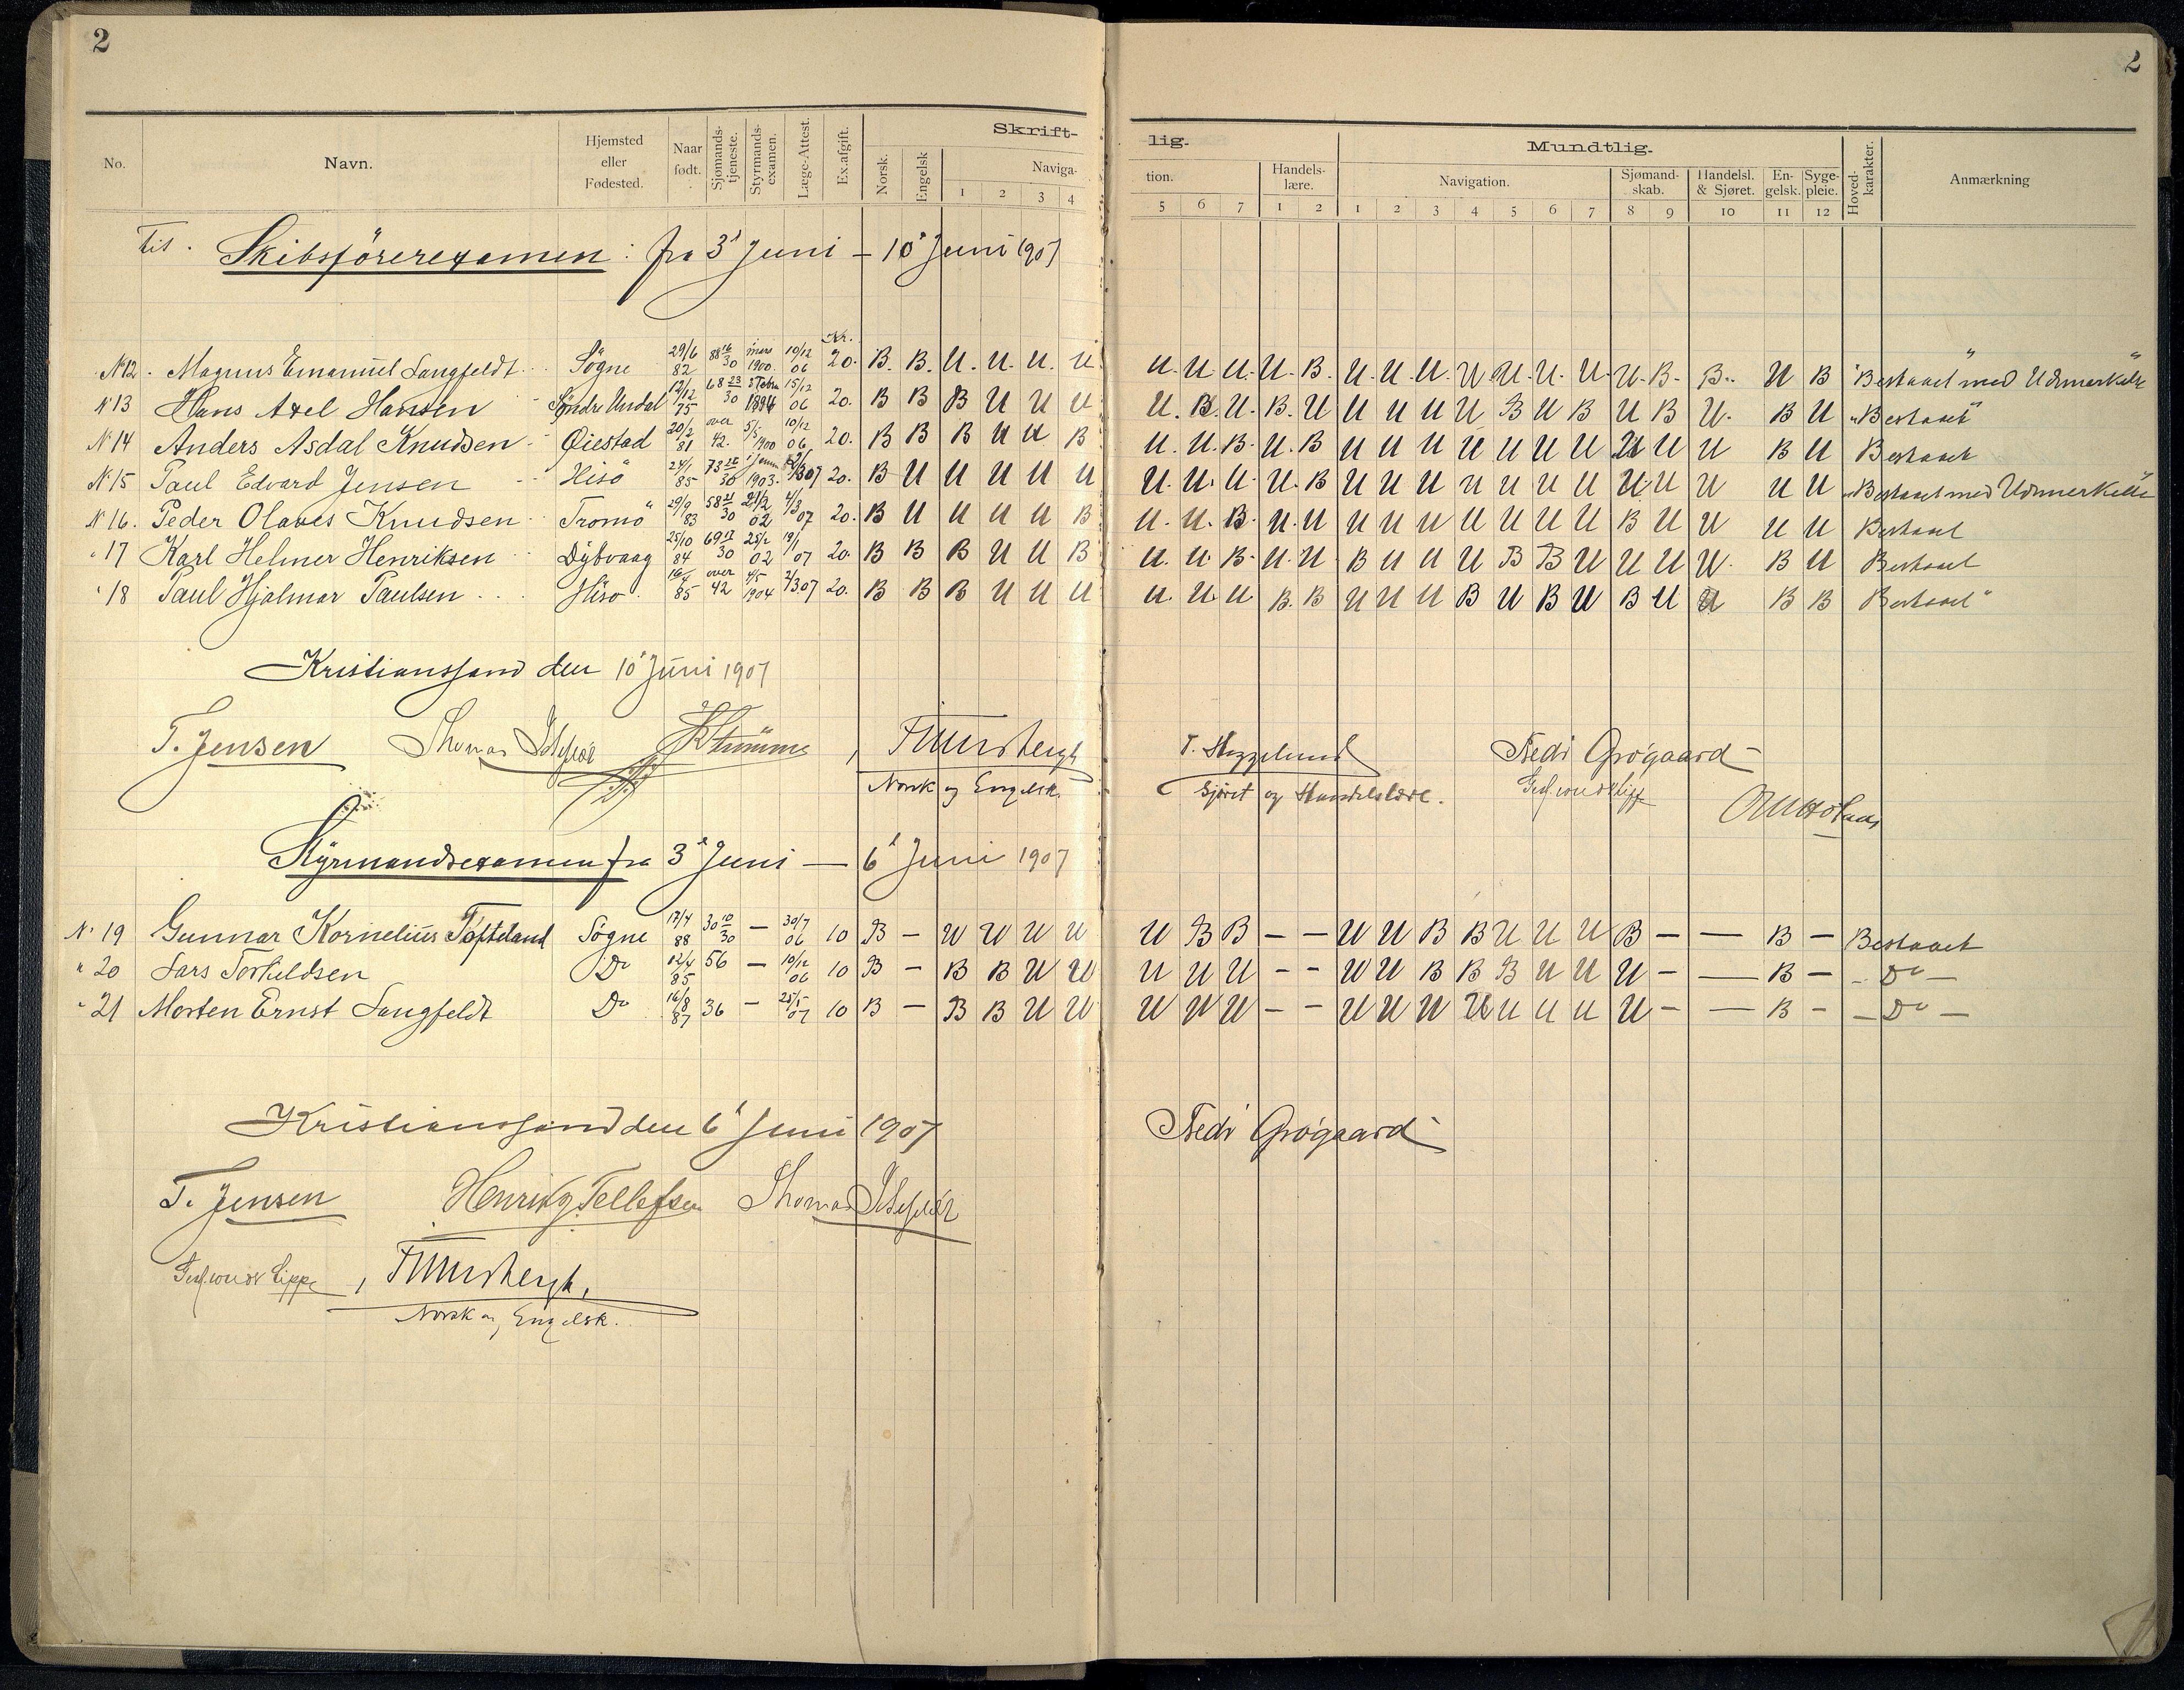 2 2
Skrift- lig. Mundtlig.
No. Navn. Hjemsted eller Fødested. Naar født. Sjømands-tjeneste. Styrmands-examen. Læge-Attest. Ex.afgift. Norsk. Engelsk Naviga- tion. Handels-lære. Navigation. Sjømand-skab. Handelsl. & Sjøret. En-gelsk. Syge-pleie. Hoved-karakter. Anmærkning
1 2 3 4 5 6 7 1 2 1 2 3 4 5 6 7 8 9 10 11 12
Til. Skibsförerexamen: fra 3d Juni – 10d Juni 1907
Kr.
No 12. Magnus Emanuel Langfeldt Sögne 29/6 82 88 16/30 mars 1900. 10/12 06 20. B. B. U. U. U. U U. U. U. U. B. U. U. U. U U. U. U. U. B. B. U B "Bestaaet med Udmerkelse"
No 13 Hans Axel Hansen Søndre Undal 12/12 75 68 23/30 15/12 06 20. B B B U U U U. B. U. B. U U U U U B U B U B U. B U "Bestaaet"
No 14 Anders Asdal Knudsen Øiestad 20/2 81 over 42. 5/5 1900 10/12 06 20. B B B U U B U. U. B. U. B U U U U U U U U U U B U Bestaaet
No 15 Paul Edvard Jensen Hisö 24/1 85 1903. 20. B U U U U U U. U. U. U. B U U U U U U U U U U U U "Bestaaet med Udmerkelse"
No 16. Peder Olaves Knudsen Tromö 29/9 83 58 21/30 21/2 02 4/3 07 20. B U U U U B U. U. B. U. U U U U U U U U B U U U U Bestaaet
" 17 Karl Helmer Henriksen Dybvaag 25/10 84 69 17/30 25/2 02 19/1 07 20. B B B U U B U. U. B. U. U B U U U B B U U U U. B U Bestaaet
" 18 Paul Hjalmar Paulsen Hisö 16/4 85 over 42 4/5 1904 2/3 07 20. B B B U U U U. U. U B. B U U U B U B U B U U B B Bestaaet"
Kristianssand den 10d Juni 1907
T. Jensen Thomas , T. Heggelund Fredr Grögaard
Norsk og Engelsk. Sjöret og Handelslære.
Styrmandsexamen fra 3d Juni — 6d Juni 1907
No 19 Gunnar Kornelius Tofteland Sögne 17/4 88 30 10/30 — 30/7 06 10 B – U U U U U B B – – U U B B U U U B – — B – Bestaaet
" 20 Lars Torkeldsen Do 12/4 85 56 — 10/12 06 10 B – B B U U U U U – – U U B B B U U U – — B – – Do –
" 21 Morten Ernst Langfeldt Do 16/8 87 36 — 25/5 07 10 B – B B U U U U U – – U U U U U U U U – — B – – Do –
Kristianssand den 6d Juni 1907 Fredr Grögaard
T. Jensen Henrik Tellefsen Thomas
Lippe ,
Norsk og Engelsk.